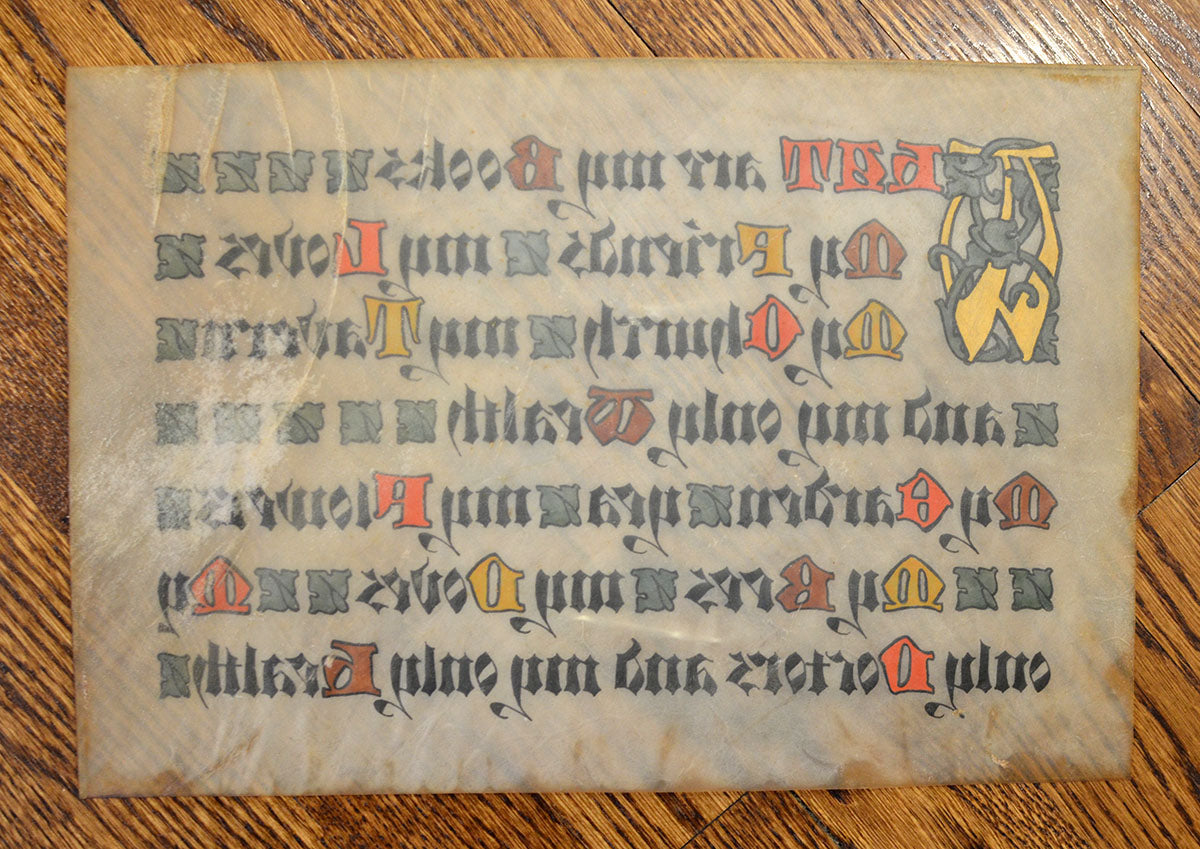 WHAT are my Books
My Friends my Loves
My Church my Tavern
and my only Wealth
My Garden yea my Flowers
My Bees my Doves My
only Doctors and my only Health